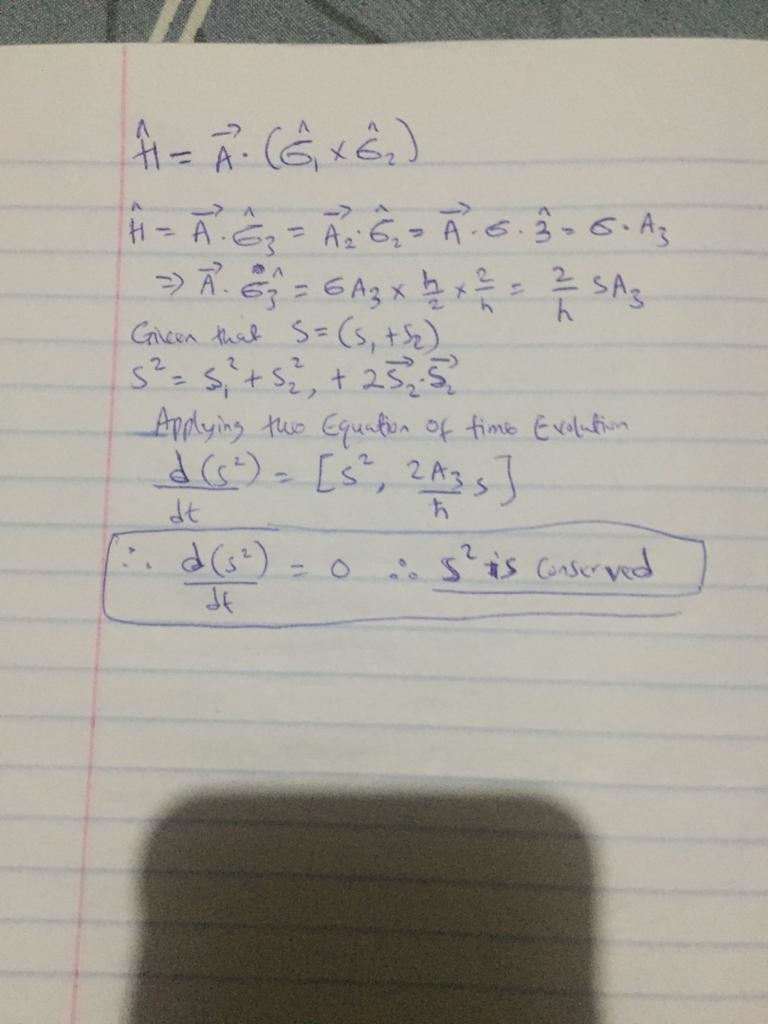 Ĥ = A⃗ · (σ̂₁ × σ̂₂)
Ĥ = A⃗ · σ̂₃ = A⃗₂ · σ̂₂ = A⃗ · σ · 3̂ = σ · A₃
⇒ A⃗ · σ̂₃ = σA₃ × ħ/2 × 2/ħ = 2/ħ SA₃
Given that S = (S₁ + S₂)
S² = S₁² + S₂², + 2S⃗₂ · S⃗₂
Applying the Equation of time Evolution
d(S²)/dt = [S², 2A₃/ħ S]
∴ d(S²)/dt = 0 ∴ S² is conserved